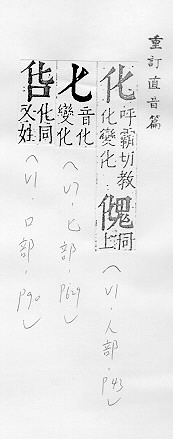 重訂直音篇
化 呼霸切教化變化 傀 同上（V1．人部．P43）
匕 音化變化（V7．匕部．P629）
化同又姓（V1．口部．P90）